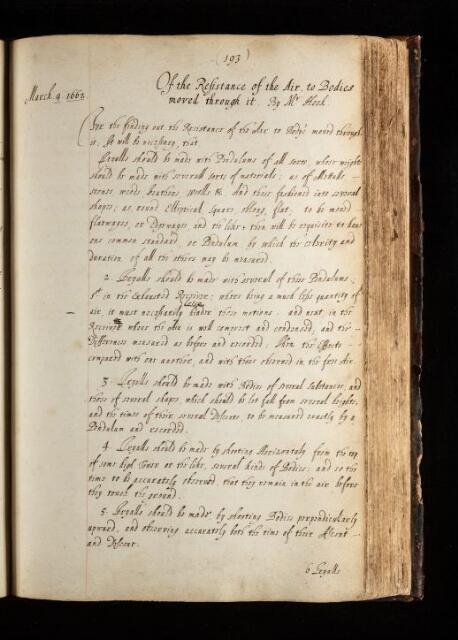 (193)
March. 9. 1662
Of the Resistance of the Air, to Bodies
moved through it. By Mr. Hook.
For the finding out the Resistance of the Air to Bodys moved through
it, It will be necessary, that
Tryalls should be made with Pendulums of all sorts, whose weight
should be made with severall sorts of materials; as of Mettalls
stones woods feathers, wools &c. And these fashioned into severall
shapes; as, round Elliptical square, oblong, flat, to be moved
flatwayes, or Edgwayes, and the like, then will be requisite to have
one common standard, or Pendulum by which the celerity and
duration of all the others may be measured.
2. Tryalls should be made with several of these Pendulums;
1st in the Exhausted Receiver; where being a much less quantity of
air, it must necessarily hinder these motions less and next, in the
Receiver where the air is well comprest and condensed, and the
Differences measured as before and recorded; Then the Effects
compared with one another, and with those observed in the free Air.
3. Tryalls should be made with Bodies of several substances, and
those of several shapes which should be let fall from several heights,
and the times of their several Descents, to be measured exactly by a
Pendulum and recorded.
4. Tryalls should be made by shooting Horizontaly from the top
of some high Tower or the like, several kinds of Bodies; and so the
time to be accurately observed, that they remain in the air before
they touch the ground.
5. Tryalls should be made by shooting Bodies perpendicularly
upward, and observing accurately both the time of their Ascent
and Descent.
6 Tryalls